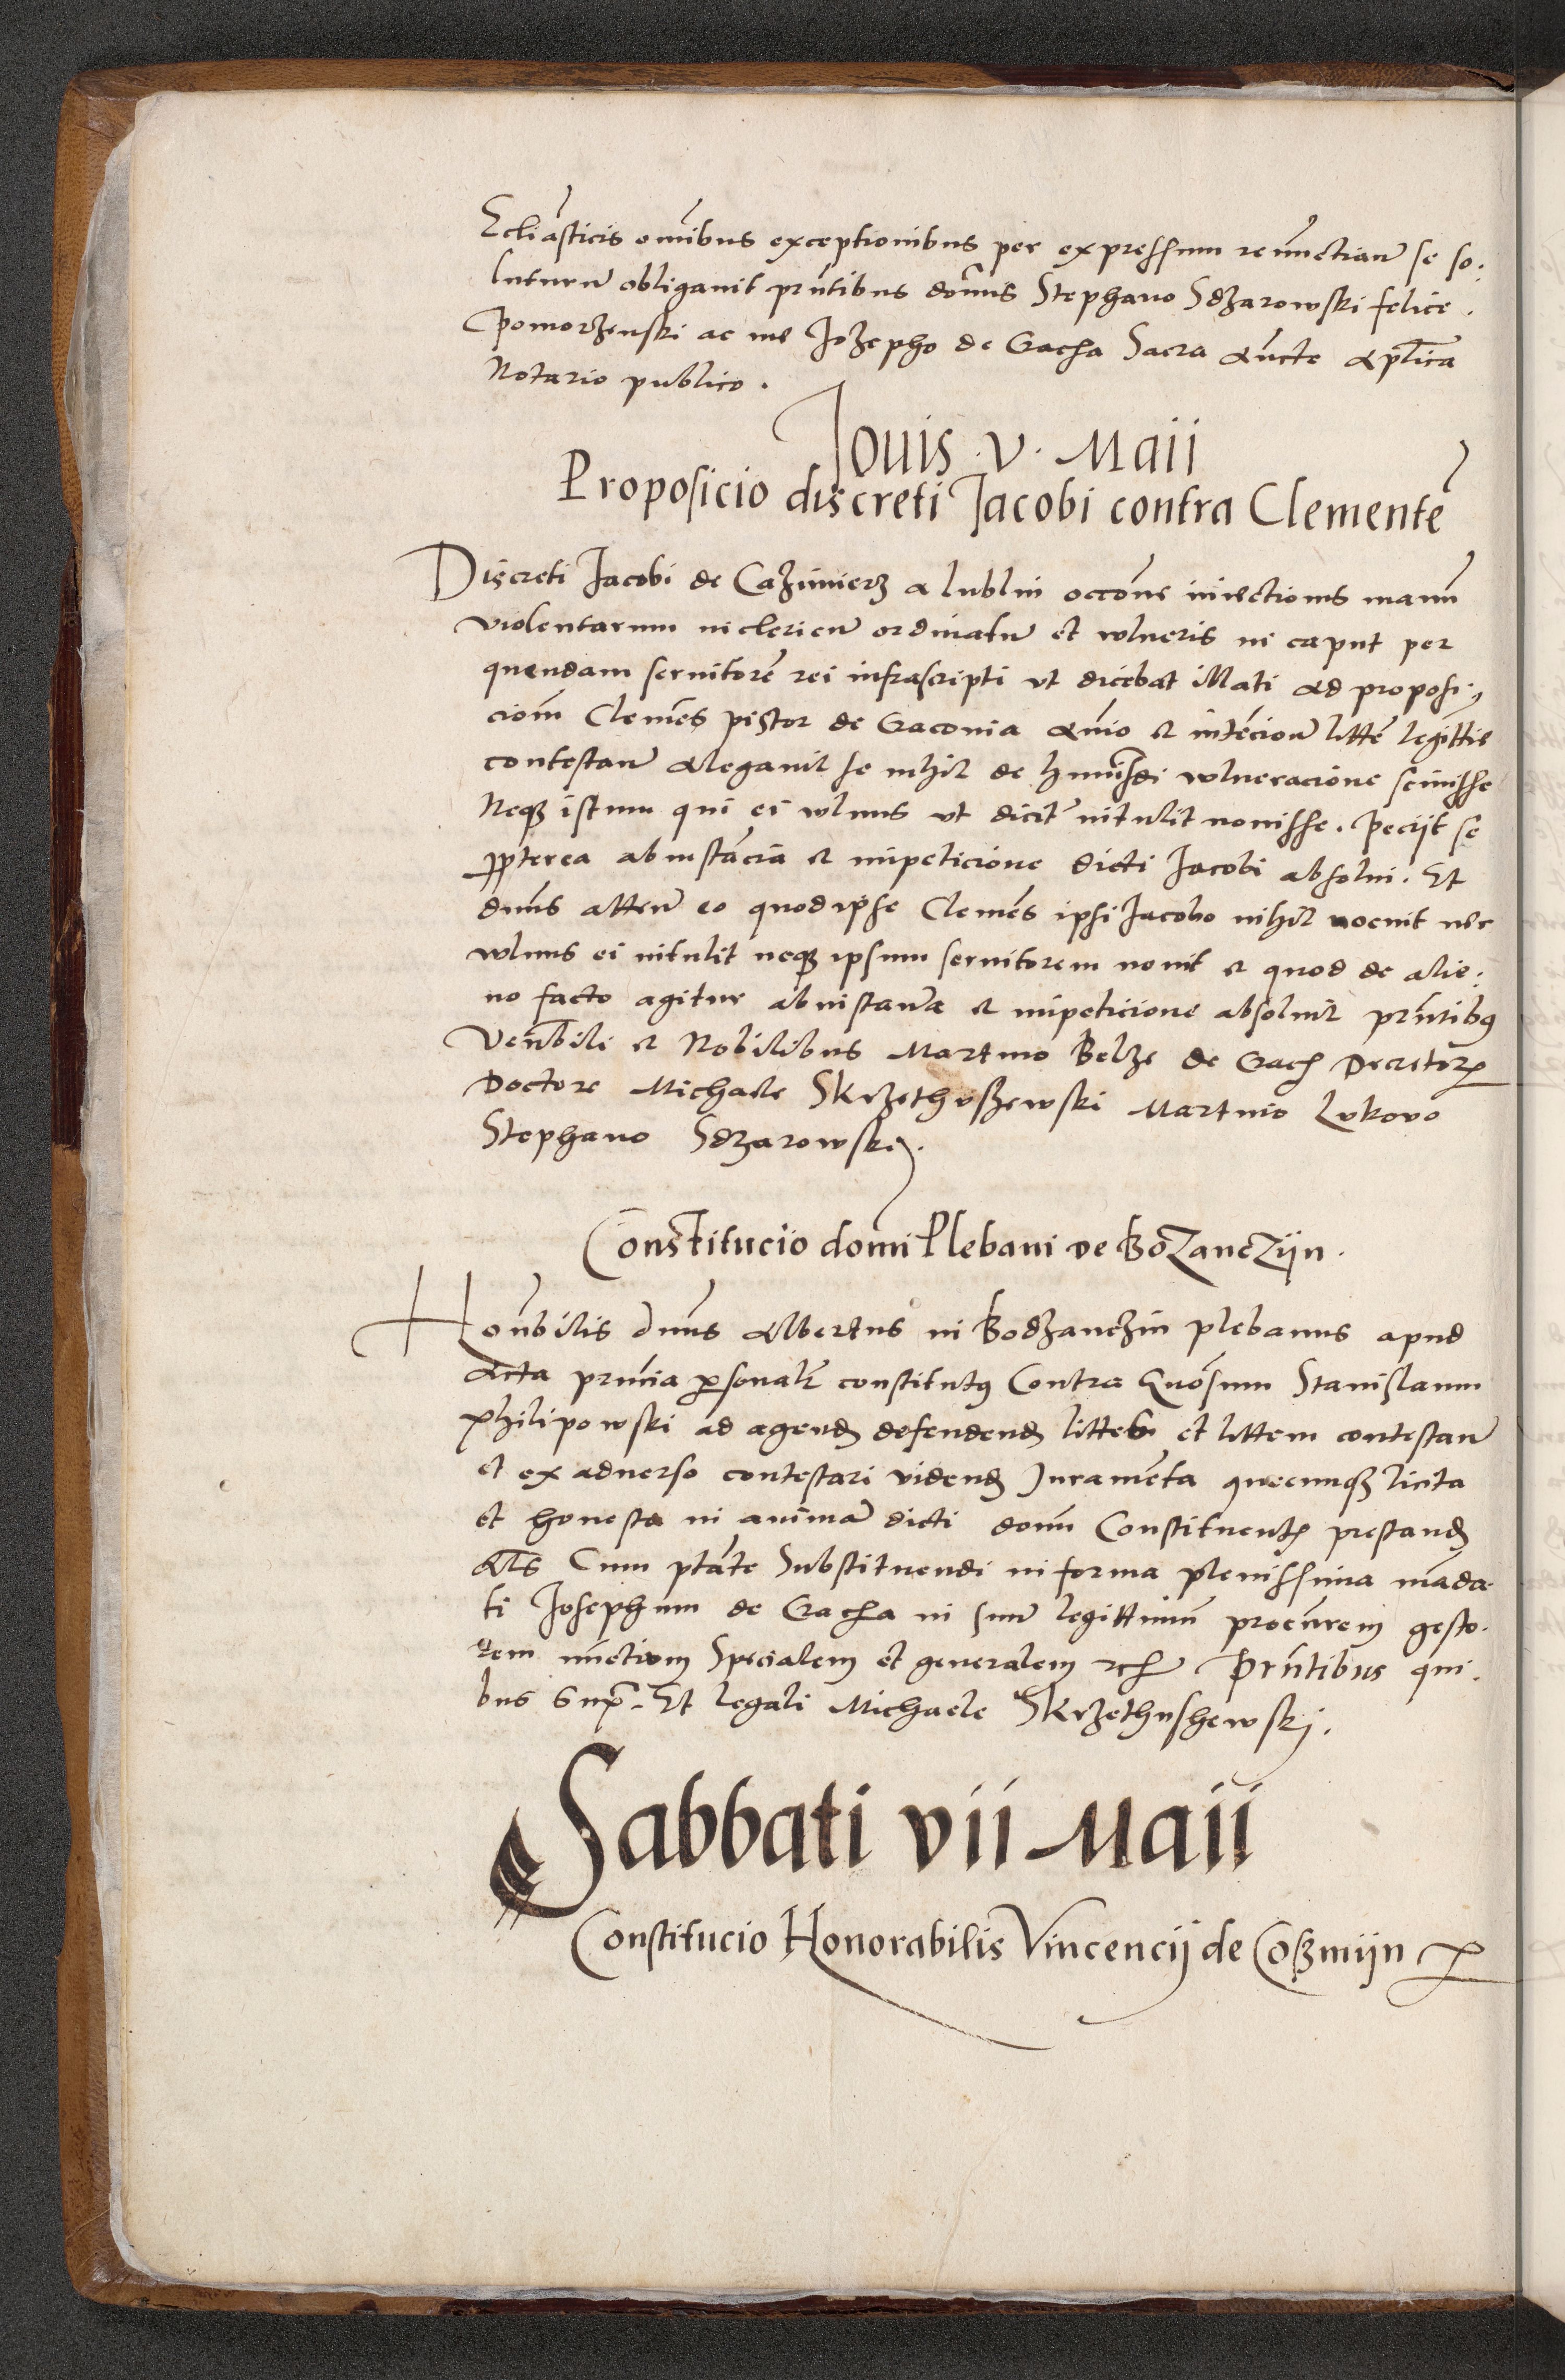 Ecliãsticis om̃ibus exceptionibus per expressum renũctian̄ se so:
luturũ obligauit pñtibus domĩs Stephano Sdzarowski felice.
Pomorzenski ac me Jozepho de Gacha Sacra auc̃te apl̃ica
Notario publico.
Jouis .v. Maii
Proposicio discreti Jacobi contra Clementẽ
Discreti Jacobi de Cazimierz a lublin occõne iniectionis manũ
violentarum in clericũ ordinatũ et vulneris in caput per
quendam seruitorẽ rei infrascripti vt dicebat illati ad proposi,
ciom̃ Clemẽs pistor de Gaconia aĩo et intẽcioñ littẽ legittie
contestan̄ allegauit se nihil de huiusm̃di vulneracione sciuisse
Neqz istum qui ei vulnus vt dicit̃ intulit nouisse. Peciit se
ꝓpterea ab instãcia et impeticione dicti Jacobi absolui. Et
dñus atten̄ eo quod ipse Clemẽs ipsi Jacobo nihil nocuit nec
vulnus ei intulit neqz ipsum seruitorem nouit et quod de alie:
no facto agitur ab instan̄a et impeticione absoluit pñtibꝰ
Venẽbili et Nobilibus Martino Belze de Gach Decretorꝝ
Doctore Michaele Skrzethuszewski Martino Lukowo
Stephano Sdzarowski.
Constitucio dom̃i Plebani de BoZancZijn.
Honõbilis dñus Albertus in Bodzanczin plebanus apud
Acta pñcia ꝑsonalr̃ constitutꝰ Contra Gñosum Stanislaum
Philipowski ad agendꝫ defendendꝫ littem et littem contestan̄
et ex aduerso contestari videndꝫ Juramẽta quecunqz licita
et honesta in animã dicti domĩ Constituentꝭ prestandꝫ
Als̃ Cum ptãte Substituendi in forma plenissima mãda-
ti Josephum de Gacha in suum legittimũ procurem gesto-
rem nũctium Specialem et generalem rcꝭ Pñtibus qui-
bus Supꝭ. Et legali Michaele Skrzethushewskj.
Sabbati vii Maii
Constitucio Honorabilis Vincencij de Coßmijn ꝑ